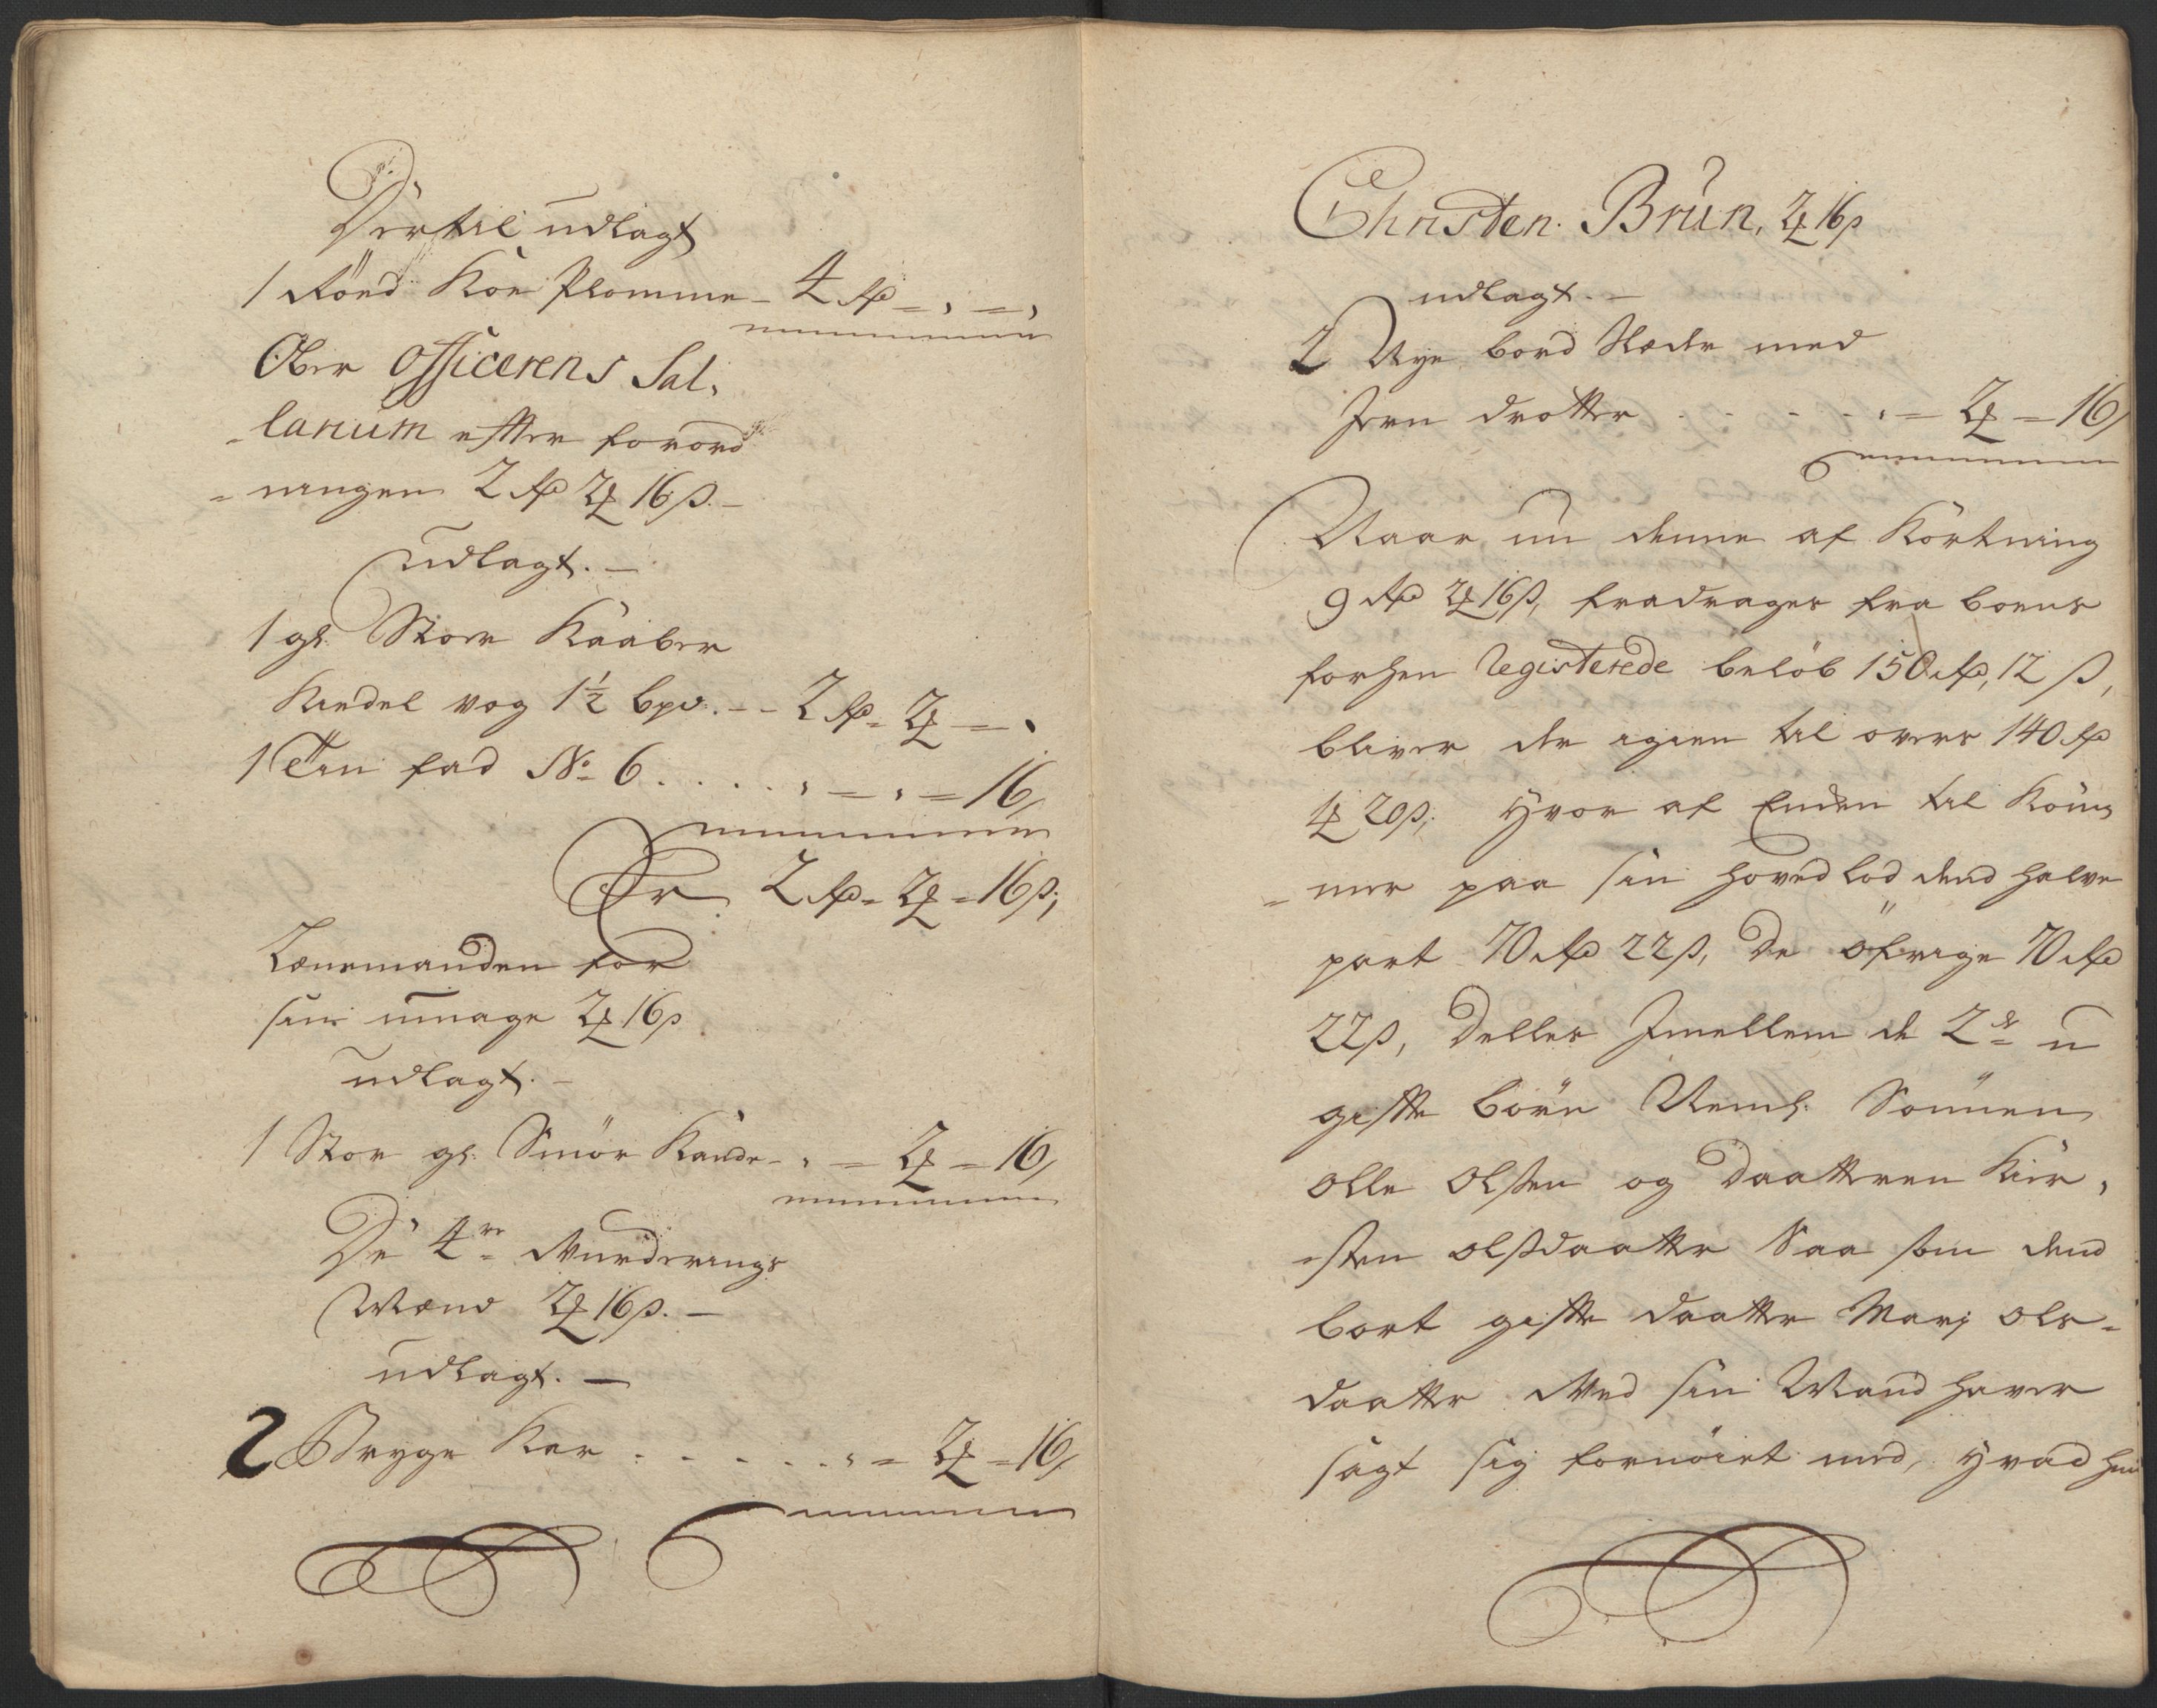 Dertil udlagt
1 Röed Koe Plomme - 4 rd = , = ,
Ober Officerens Sal,
larium efter forord
= ningen 2 rd 2 ʒ 16 ß. -
udlagt. -
1 gl. Stoer Kaaber
Kiedel vog 1½ bpd. - - 2 rd = 2 ʒ = ,
1 Tin fad No 6 . . . . , = , = 16,
Er 2 rd = 2 ʒ = 16 ß;
Lensmanden for
sin umage 2 ʒ 16 ß
udlagt. -
1 Stor gl. Smör Kande - , = 2 ʒ = 16,
De 4re Vurderings
Mænd 2 ʒ 16 ß. -
udlagt. -
2 Brÿge Kar . . . . . , = 2 ʒ = 16,
Christen Brun, 2 ʒ 16 ß
udlagt. -
2 Nye bord Klæder med
Jern drotter . . . . , = 2 ʒ = 16,
Naar nu denne af Kortning
9 rd 2 ʒ 16 ß, fradrages fra boens
forhen Registerede belöb 150 rd, 12 ß,
bliver der igien til overs 140 rd
1 ʒ 20 ß; hvor af Enken til Kom
= mer paa sin hoved lod dend halve
part 70 rd 22 ß, de öfrige 70 rd
22 ß, deeles Imellem de 2de u
gifte börn Neml. Sönnen
Olle Olsen og daatteren Kir,
sten Olsdaatter Saa som dend
bort gifte daatter Marj Ols=
daatter Med sin Mand haver
sagt sig fornöiet med, hvad hun